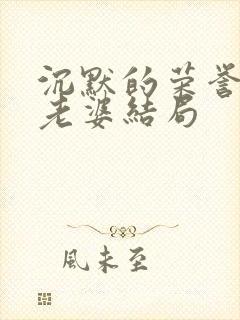 沉默的荣誉
老婆結局
風未至